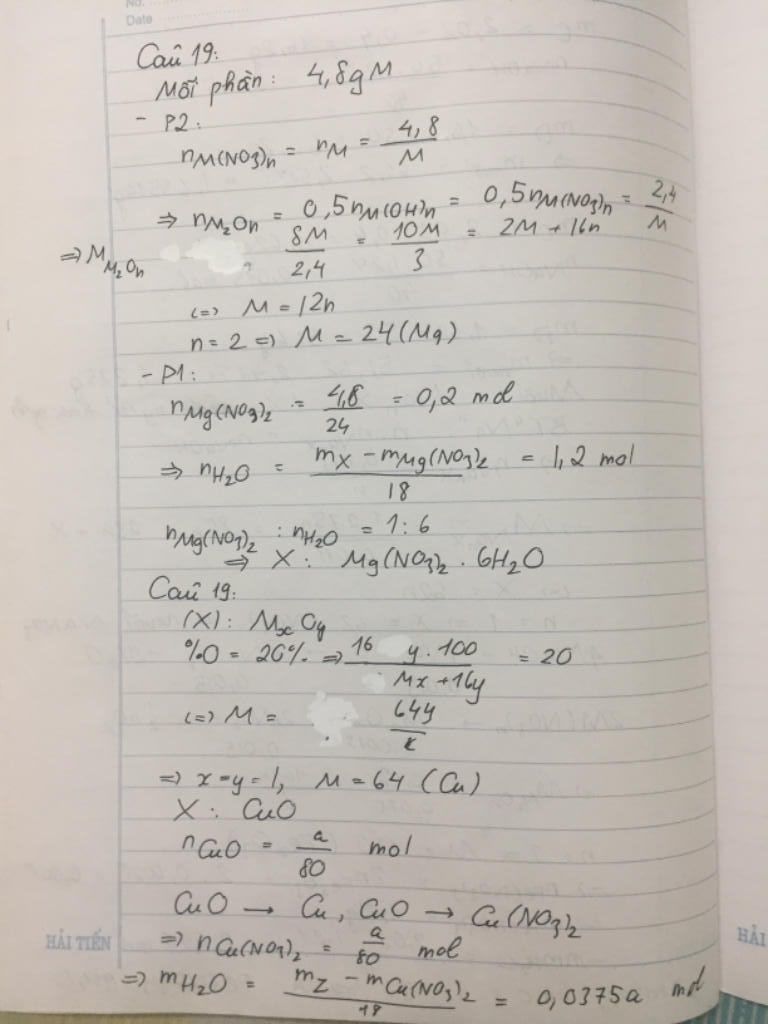 No.
Date
Câu 19:
Mỗi phần: 4,8g M
- P2:
nM(NO3)n = nM = 4,8/M
⇒ nM2On = 0,5nM(OH)n = 0,5nM(NO3)n = 2,4/M
⇒ MM2On 8M/2,4 = 10M/3 = 2M + 16n
<=> M = 12n
n = 2 => M = 24 (Mg)
- P1:
nMg(NO3)2 = 4,8/24 = 0,2 mol
⇒ nH2O = mX - mMg(NO3)2/18 = 1,2 mol
nMg(NO3)2 : nH2O = 1 : 6
⇒ X: Mg(NO3)2 . 6H2O
Câu 19:
(X): MxOy
%O = 20% ⇒ 16 y.100/Mx + 16y = 20
<=> M = 64y/x
=> x = y = 1, M = 64 (Cu)
X: CuO
nCuO = a/80 mol
CuO → Cu, CuO → Cu(NO3)2
⇒ nCu(NO3)2 = a/80 mol
⇒ mH2O = mZ - mCu(NO3)2/18 = 0,0375a mol
HẢI TIẾN
HẢI